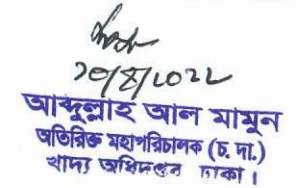 ২০/৪/২০২২
আব্দুল্লাহ আল মামুন
অতিরিক্ত মহাপরিচালক (চ. দা.)
খাদ্য অধিদপ্তর ঢাকা।